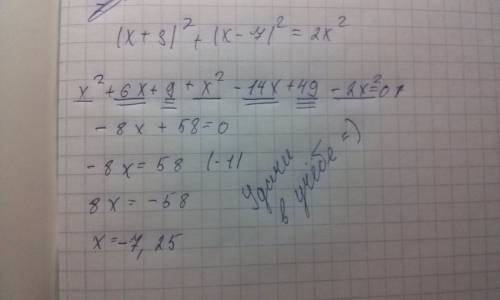 (x+3)² + (x-7)² = 2x²
x² + 6x + 9 + x² - 14x + 49 - 2x² = 0
-8x + 58 = 0
-8x = 58 (-1)
8x = -58
x = -7,25
Удачи
в учёбе =)